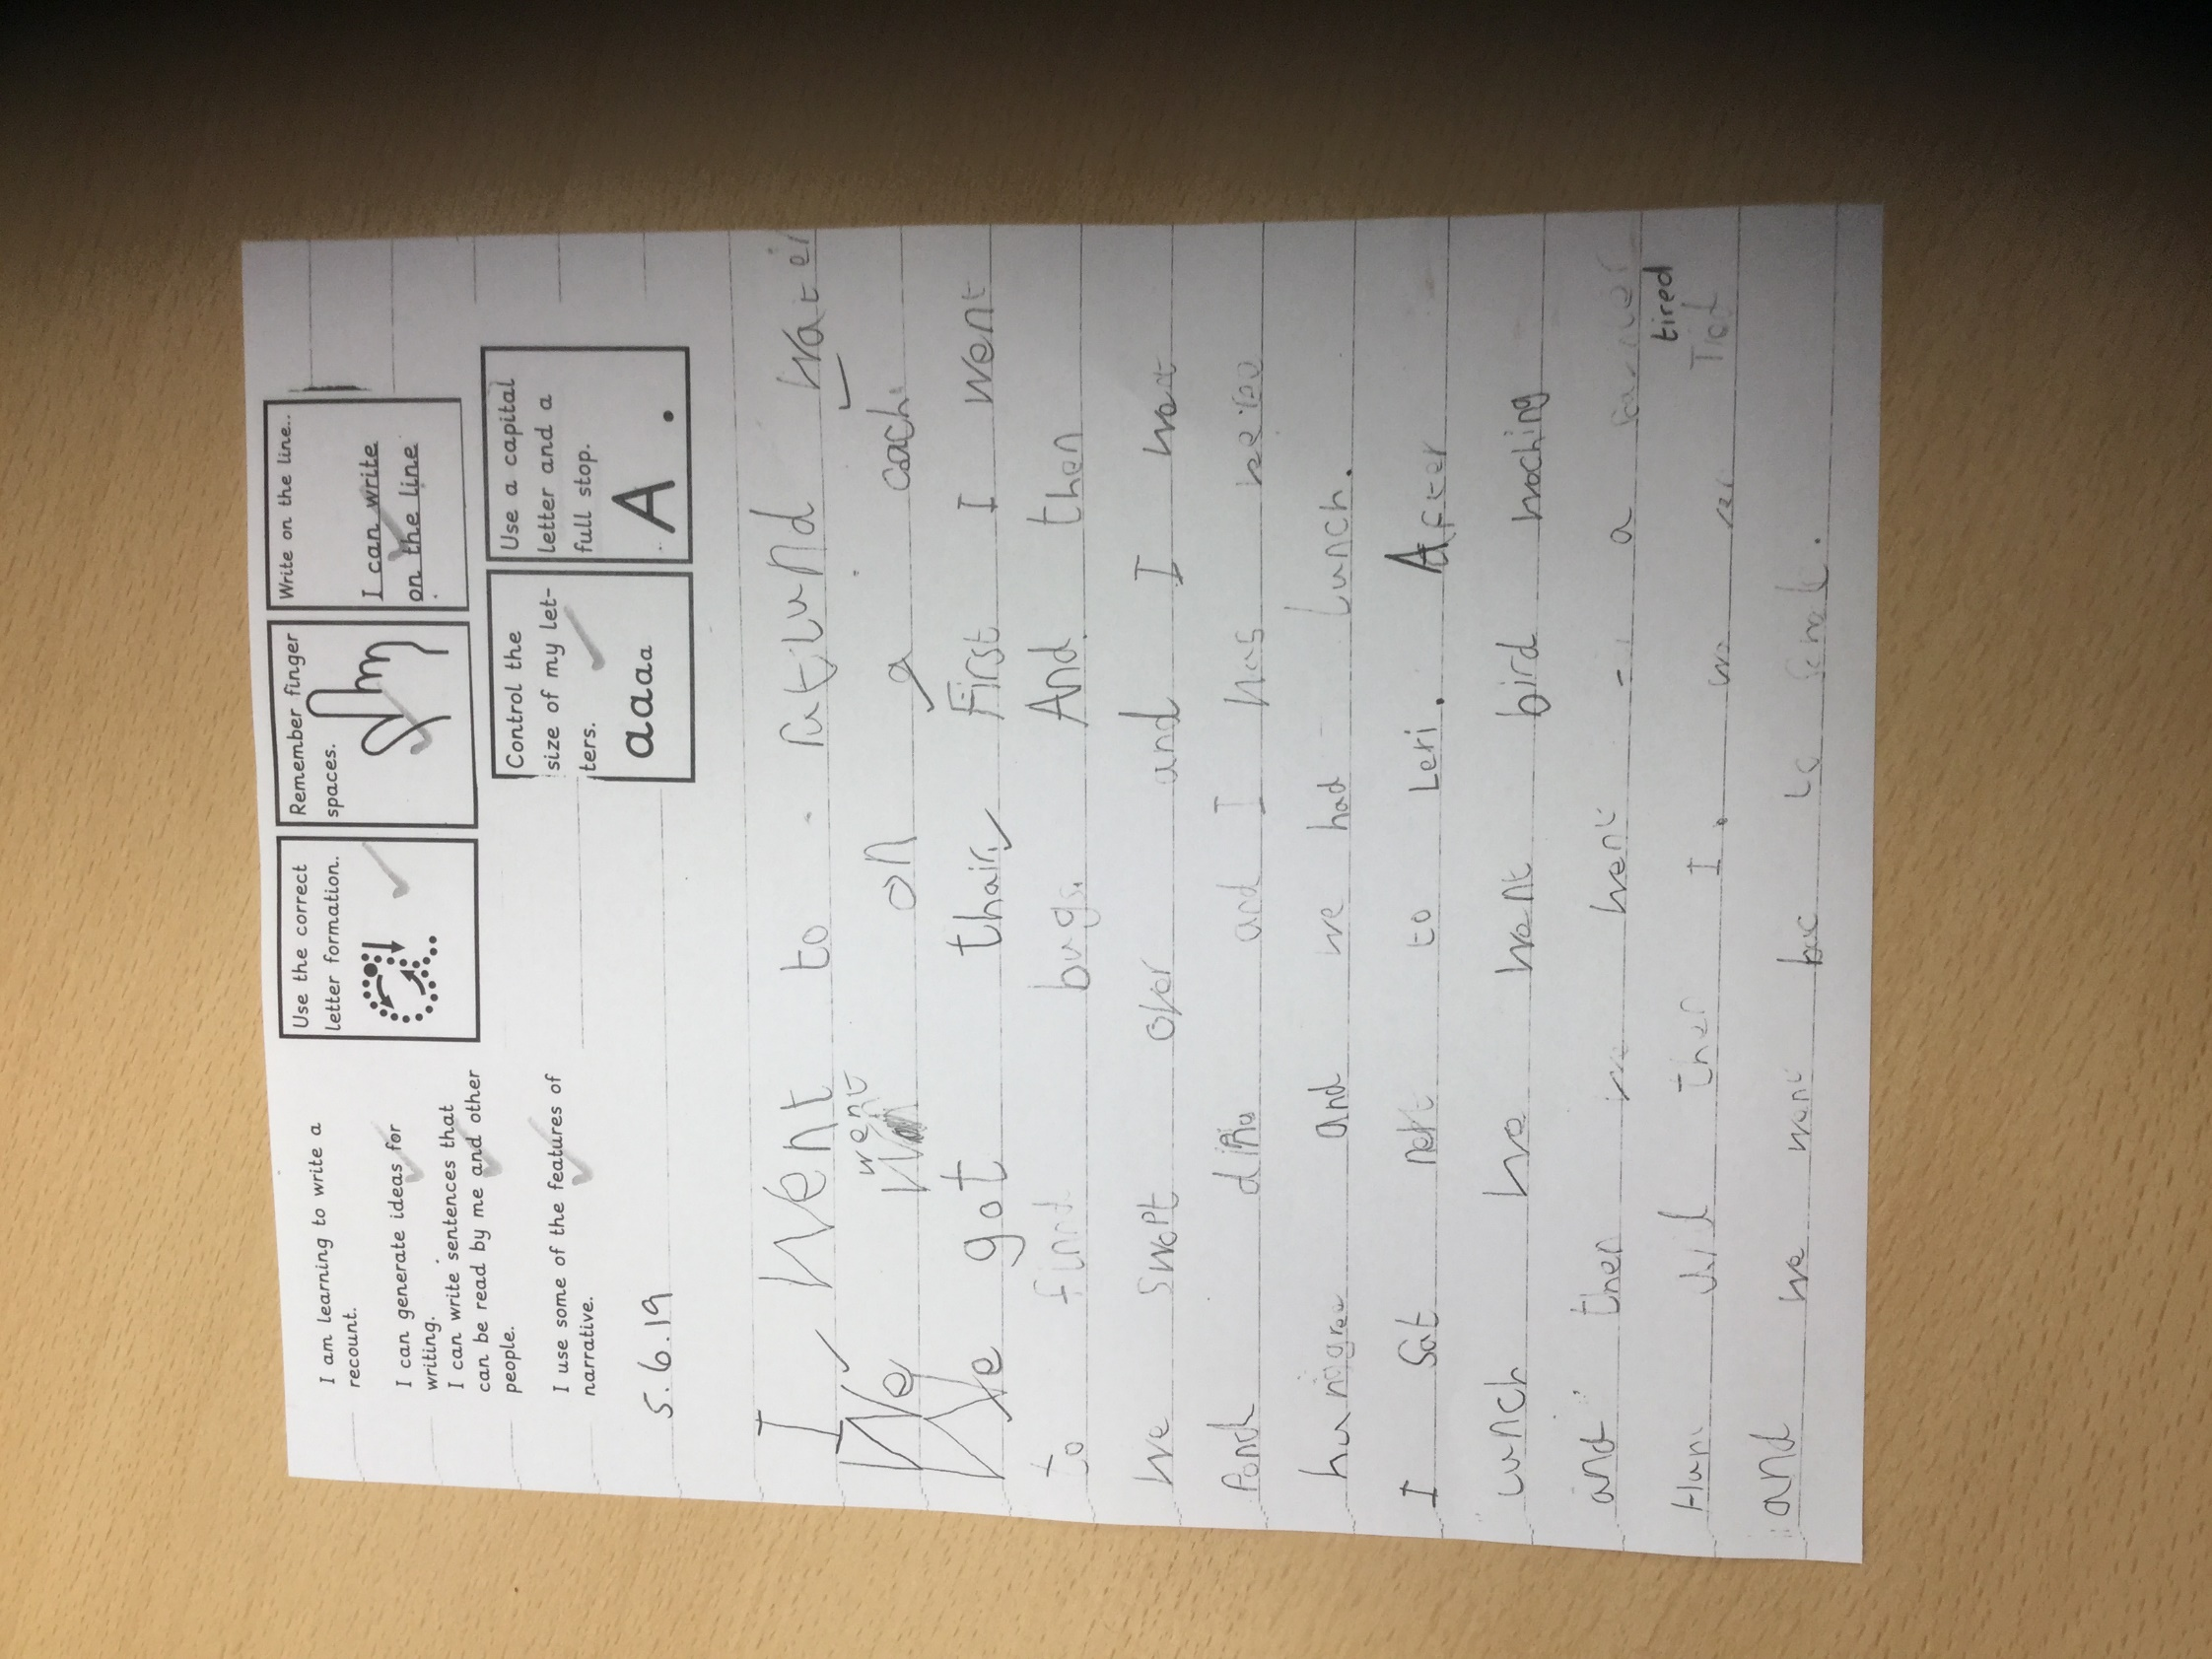 I am learning to write a
recount.
I can generate ideas for
writing.
I can write sentences that
can be read by me and other
people.
I use some of the features of
narrative.
Use the correct
letter formation.
Remember finger
spaces.
Write on the line..
I can write
on the line
Control the
size of my let-
ters.
aaaa
Use a capital
letter and a
full stop.
A .
5.6.19
I Went to rutlund Water
went
We on a coach.
We got thair First I went
to bugs. And then
We swopt over and I
Pond and I was
hungree and we had Lunch.
I Sat next to Leri. After
Lunch we went bird woching
and then we went a
tired
then I
and we went bac to